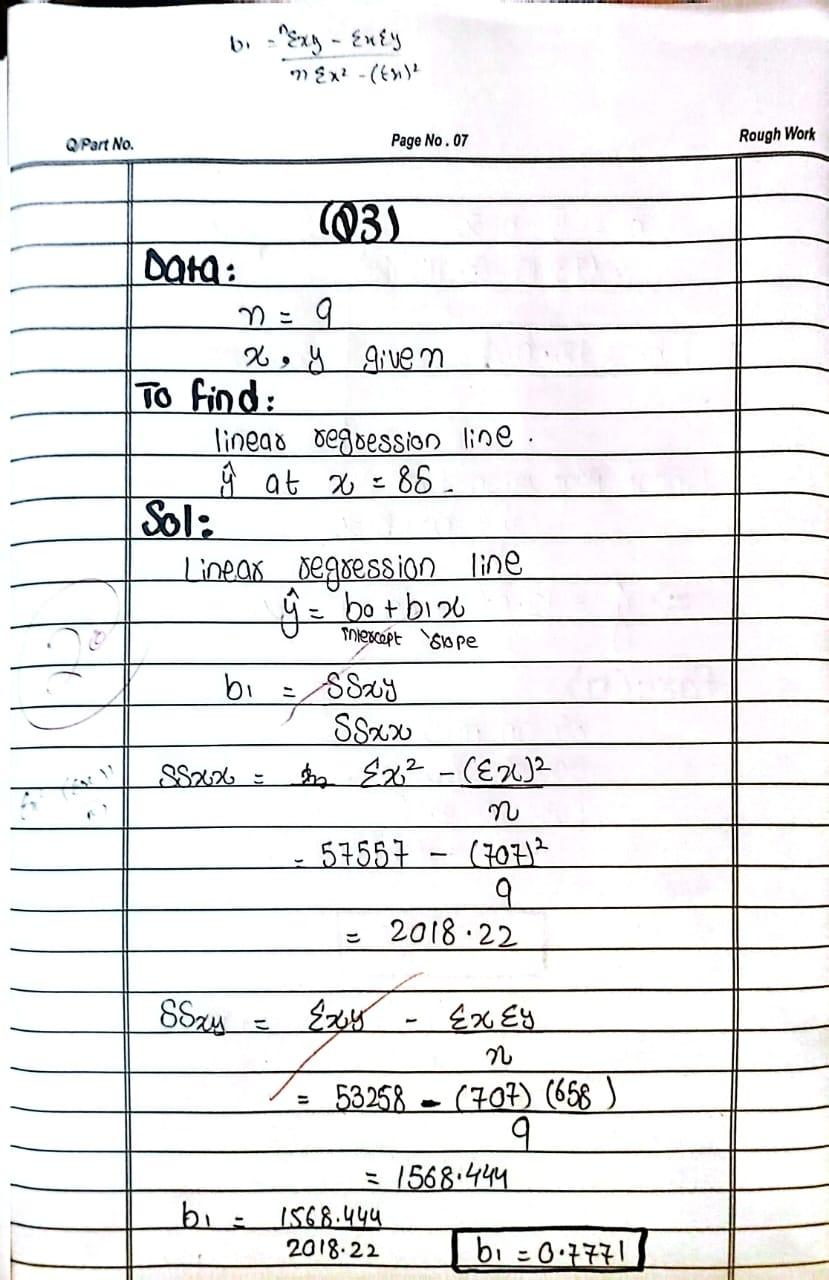 b₁ = nΣxy - ΣxΣy
nΣx² - (Σx)²
Q/Part No. Page No. 07 Rough Work
(Q3)
Data:
n = 9
x, y given
To find:
linear regression line.
ŷ at x = 85
Sol:
Linear regression line
ŷ = b0 + b1x
intercept slope
b₁ = SSxy
SSxx
SSxx = Σx² - (Σx)²
n
= 57557 - (707)²
9
= 2018.22
SSxy = Σxy - ΣxΣy
n
= 53258 - (707)(658)
9
= 1568.444
b₁ = 1568.444
2018.22 b₁ = 0.7771